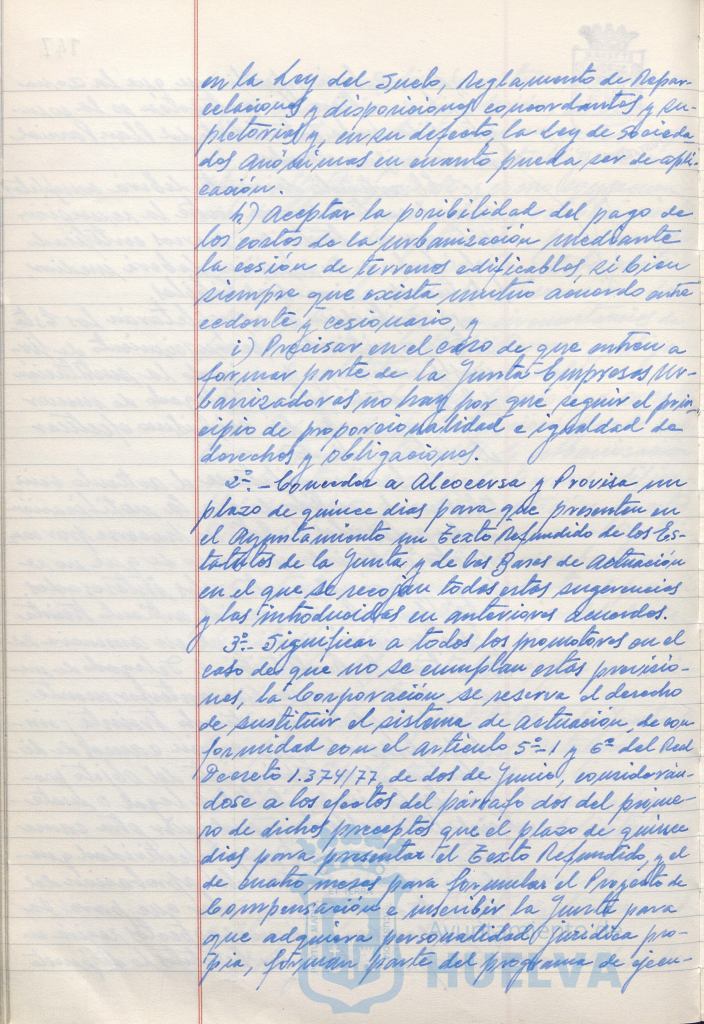 en la Ley del Suelo, Reglamento de Repar-
celaciones y disposiciones concordantes y su-
pletorias y, en su defecto, la Ley de Socieda-
des Anónimas en cuanto pueda ser de apli-
cación.
h) Aceptar la posibilidad del pago de
los costos de la urbanización mediante
la cesión de terrenos edificables, si bien
siempre que exista mutuo acuerdo entre
cedente y cesionario, y
i) Precisar en el caso de que entren a
formar parte de la Junta Empresas Ur-
banizadoras no hay por qué seguir el prin-
cipio de proporcionalidad e igualdad de
derechos y obligaciones.
2º.- Conceder a Alcocersa y Provisa un
plazo de quince días para que presenten en
el Ayuntamiento un Texto Refundido de los Es-
tatutos de la Junta y de las Bases de Actuación
en el que se recojan todas estas sugerencias
y las introducidas en anteriores acuerdos.
3º.- Significar a todos los promotores en el
caso de que no se cumplan estas previsio-
nes, la Corporación se reserva el derecho
de sustituir el sistema de actuación, de con-
formidad con el artículo 5º-1 y 6º del Real
Decreto 1.374/77, de dos de Junio, considerán-
dose a los efectos del párrafo dos del prime-
ro de dichos preceptos que el plazo de quince
días para presentar el Texto Refundido, y el
de cuatro meses para formular el Proyecto de
Compensación e inscribir la Junta para
que adquiera personalidad jurídica pro-
pia, forman parte del programa de ejecu-
Ayuntamiento de
HUELVA